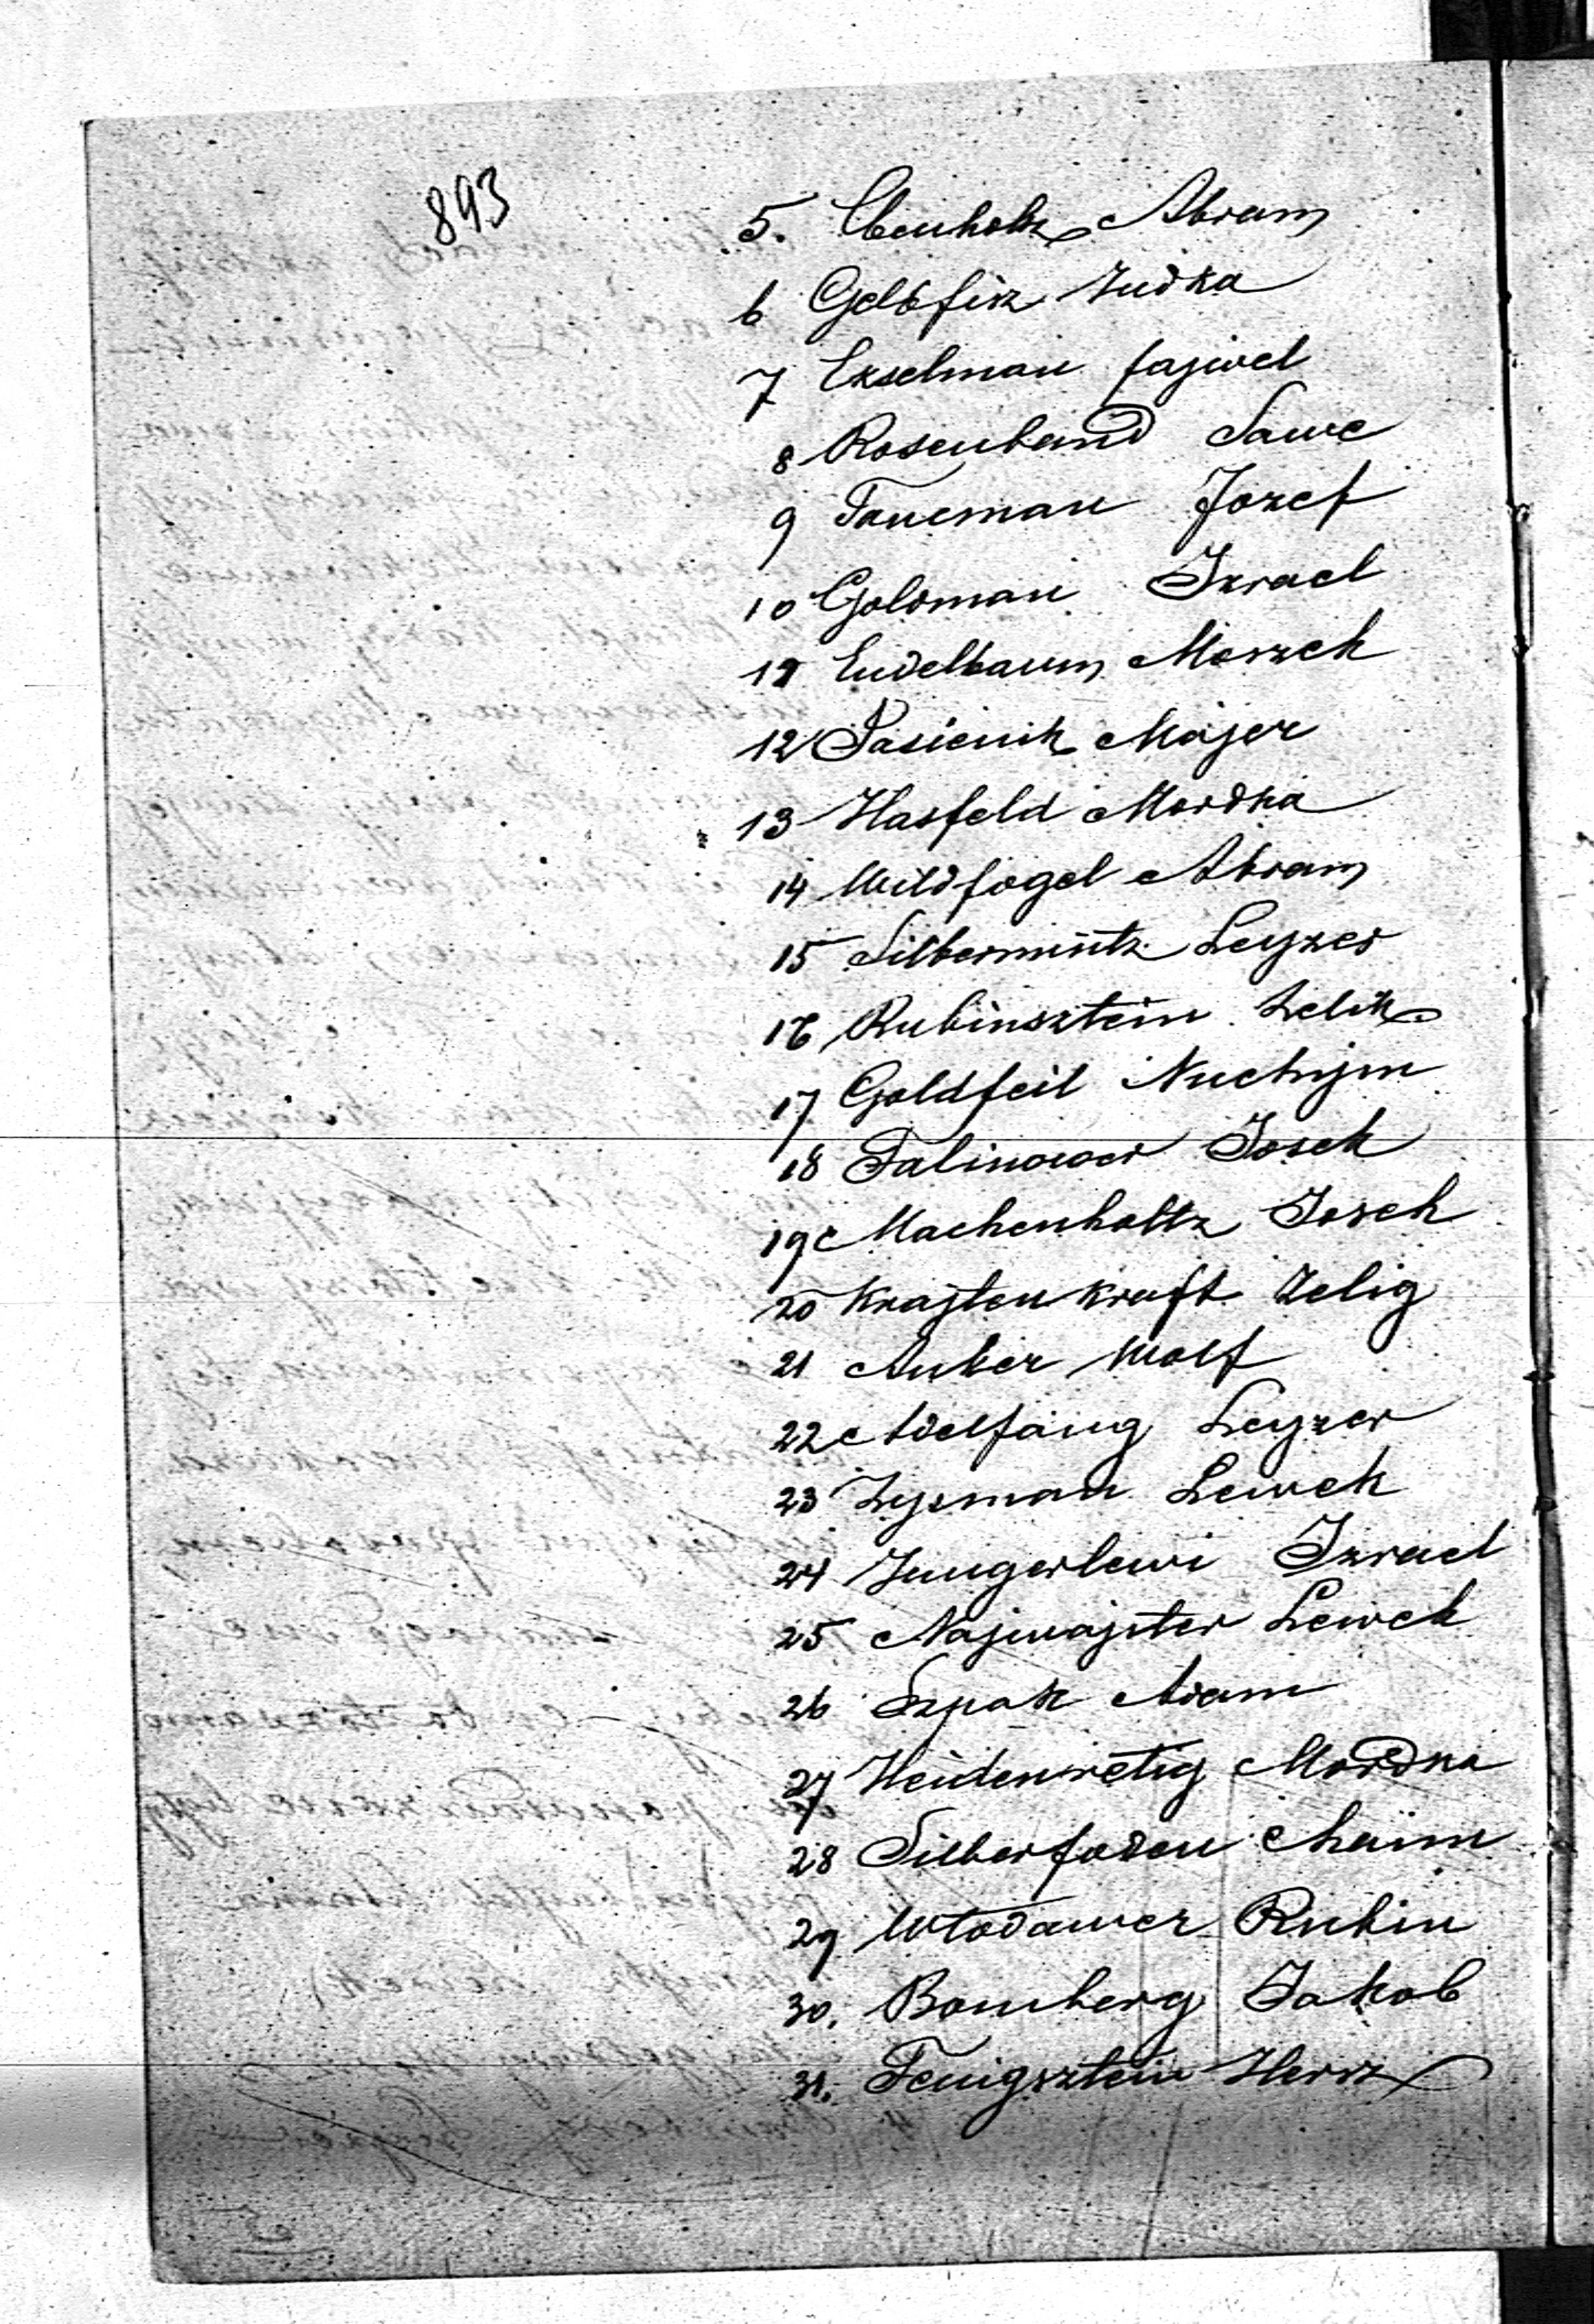 893
5. Ebenholz Abram
6 Gelbfisz Judka
7 Ekselman fajwel
8 Rosenband Sawe
9 Tancman Jozef
10 Goldman Izrael
11 Eudelbaum Moszek
12 Pasienik Majer
13 Hasfeld Mordka
14 Wildfogel Abram
15 Silbermintz Leyzer
16 Rubinsztein Zelik
17 Goldfeil Nuchym
18 Falinower Josek
19 Machenholtz Josek
20 Krajtenkraft Zelig
21 Anker Wolf
22 Adelfang Leyzer
23 Zysman Lewek
24 Jungerlewi Izrael
25 Najmajster Lewek
26 Szpak Adam
27 Heidenretig Mordka
28 Silberfaden Chaim
29 Włodawer Rubin
30. Bomberg Jakob
31. Fenigsztein Hersz